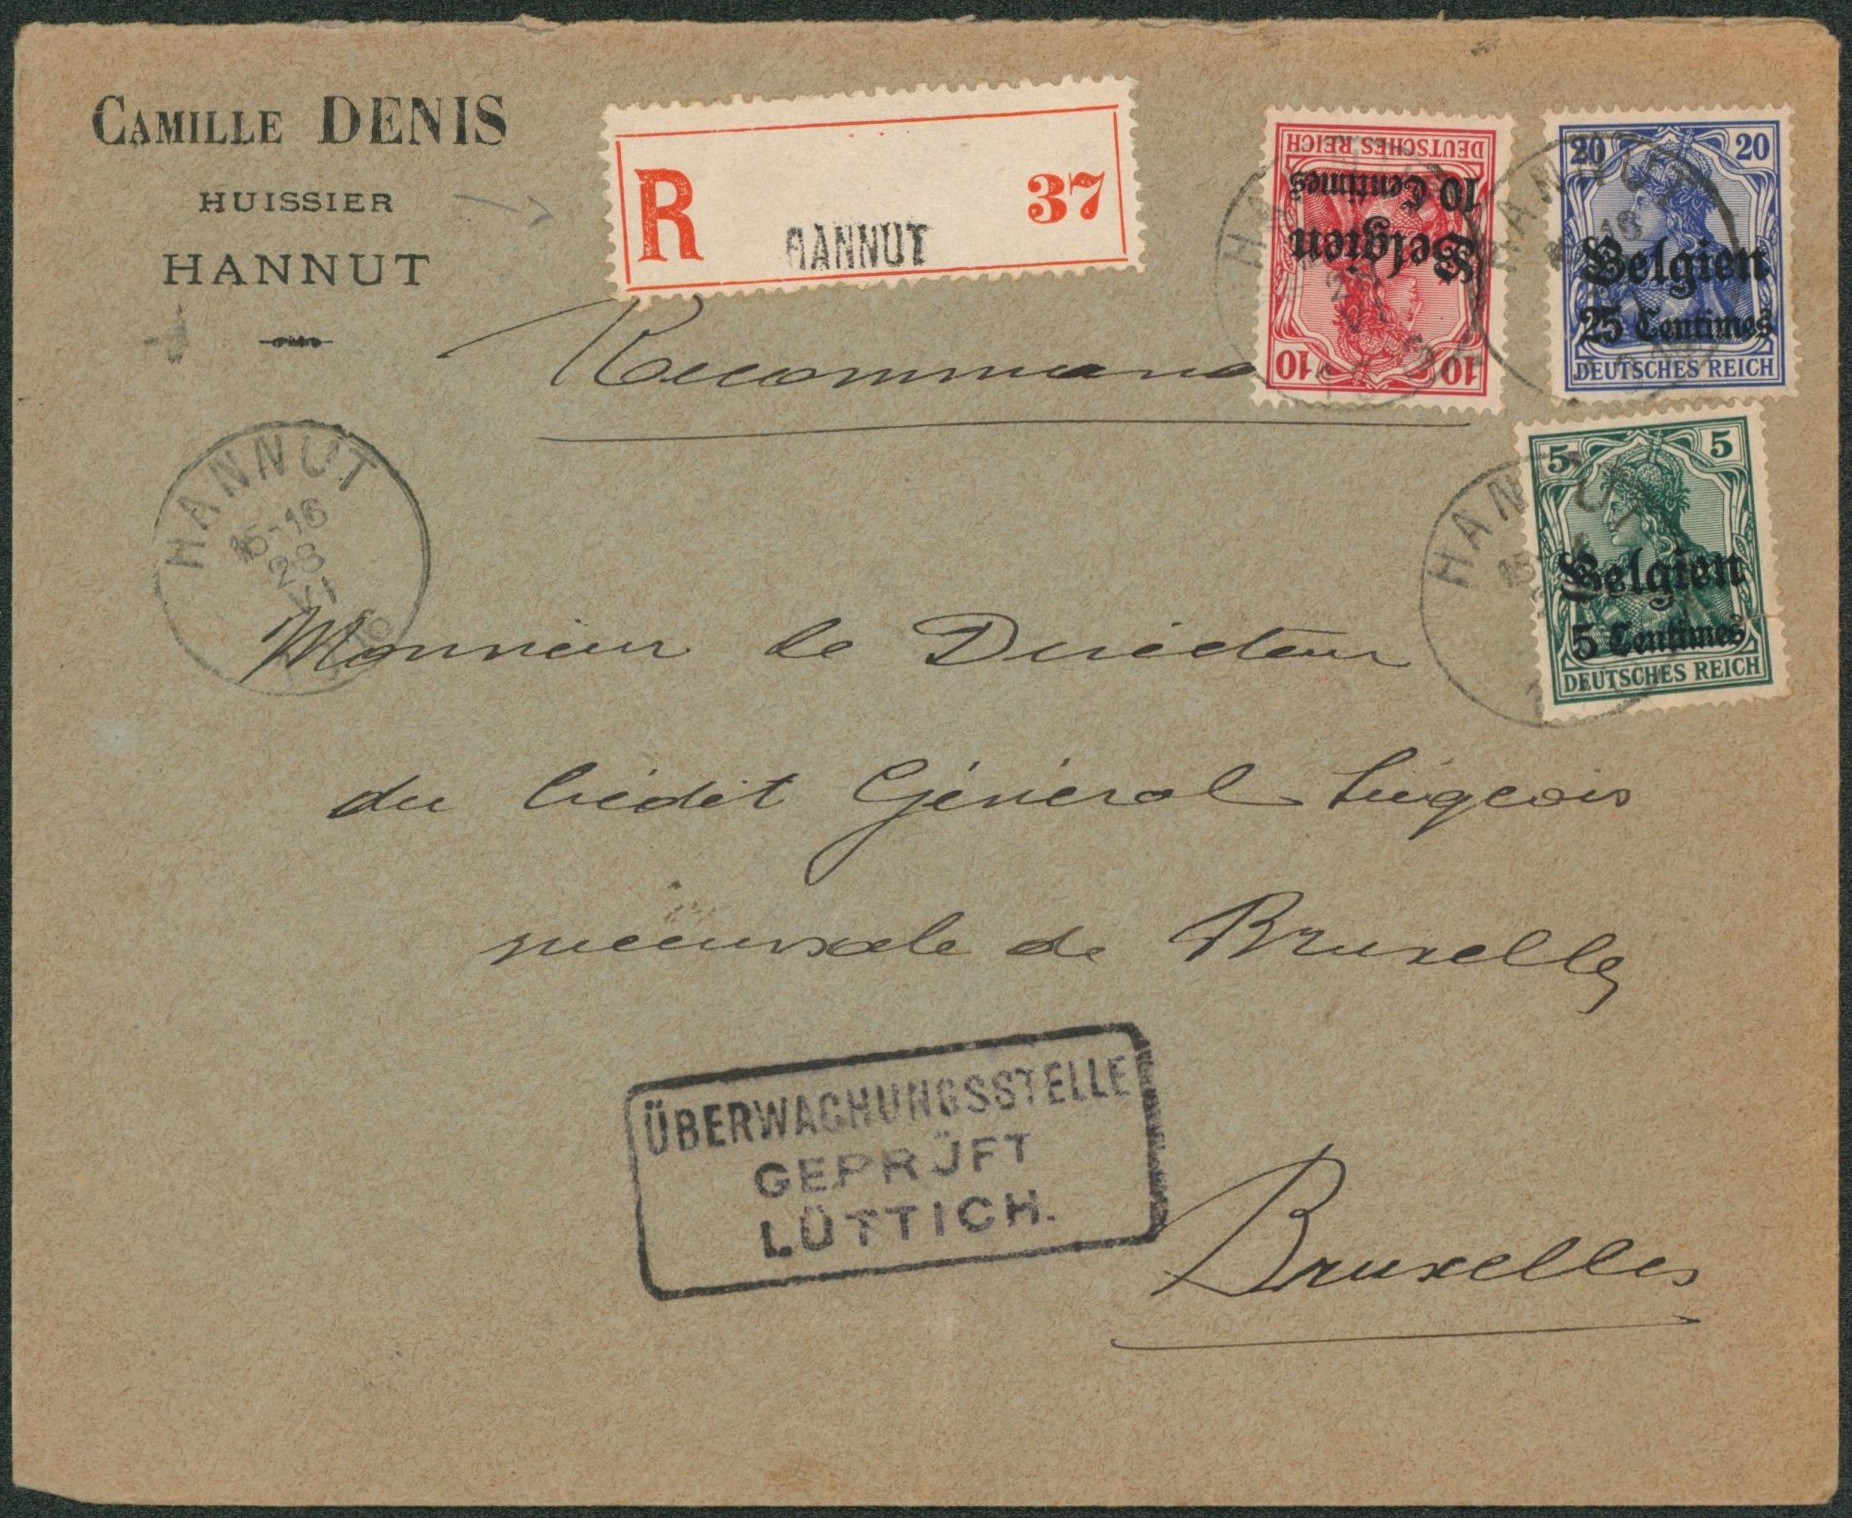 CAMILLE DENIS
HUISSIER
HANNUT
R 37
HANNUT
DEUTSCHES REICH
10 Centimes
Belgien
10 10
20 20
Belgien
25 Centimes
DEUTSCHES REICH
5 5
Belgien
5 Centimes
DEUTSCHES REICH
HANNUT
HANNUT
HANNUT
15
HANNUT
15-16
28
VI
Monsieur le Directeur
du Crédit Général Liégeois
succursale de Bruxelles
ÜBERWACHUNGSSTELLE
GEPRÜFT
LÜTTICH.
Bruxelles